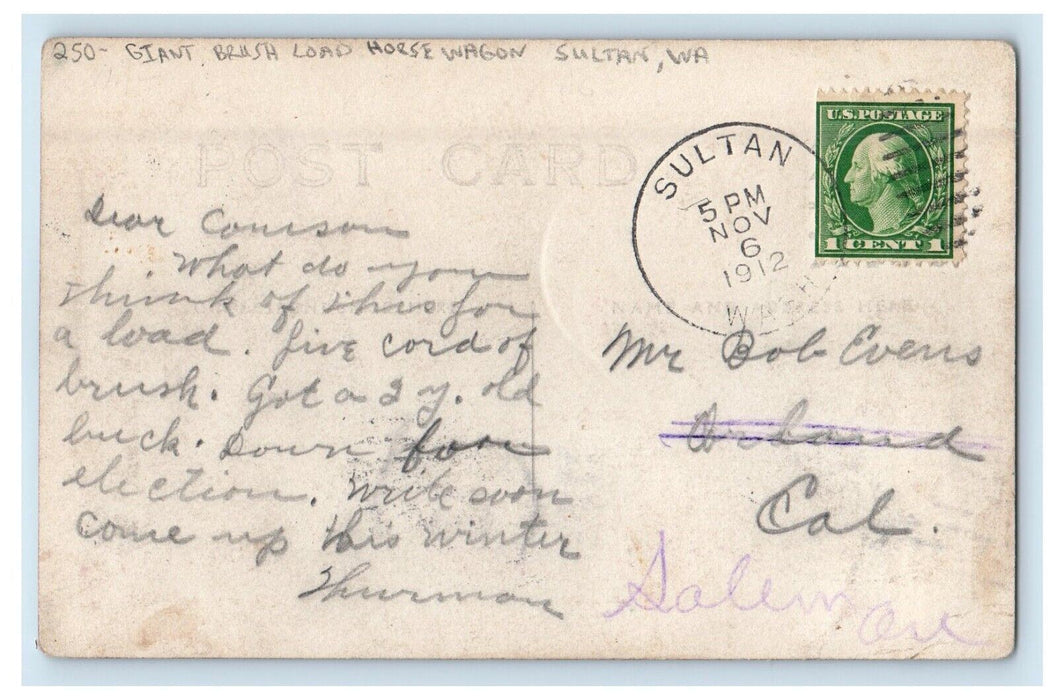 250- GIANT BRUSH LOAD HORSE WAGON SULTAN, WA
U.S. POSTAGE
1 CENT 1
SULTAN
5 PM
NOV
6
1912
WASH.
POST CARD
NAME AND ADDRESS HERE
Dear Couison
What do you
think of this for
a load. five cord of
brush. Got a 2 y. old
buck. Down for
election. Write soon
come up this winter
Thurman
Mr Bob Evens
Orland
Cal.
Salem
Ore